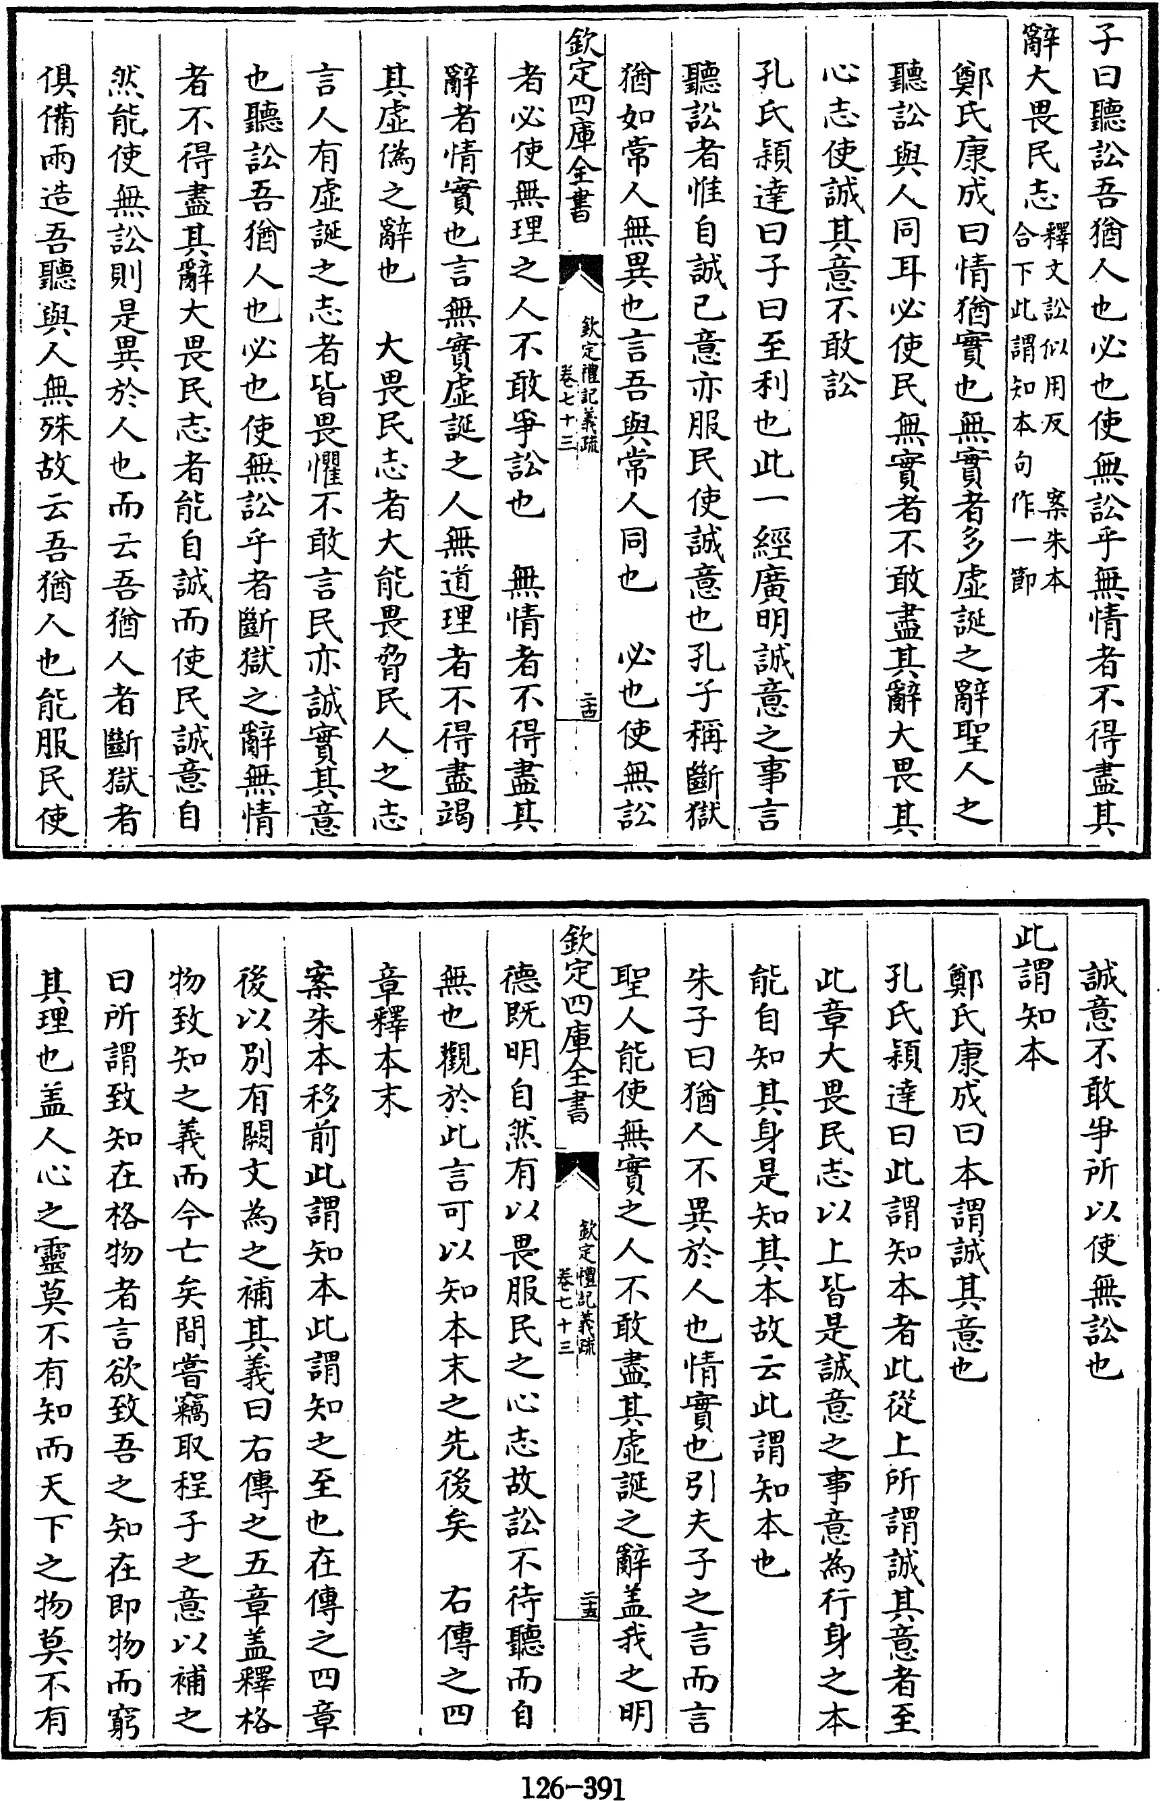 子曰聽訟吾猶人也必也使無訟乎無情者不得盡其
辭大畏民志釋文訟似用反　案朱本
合下此謂知本句作一節
鄭氏康成曰情猶實也無實者多虛誕之辭聖人之
聽訟與人同耳必使民無實者不敢盡其辭大畏其
心志使誠其意不敢訟
孔氏穎達曰子曰至利也此一經廣明誠意之事言
聽訟者惟自誠已意亦服民使誠意也孔子稱斷獄
猶如常人無異也言吾與常人同也　必也使無訟
欽定四庫全書
欽定禮記義疏
卷七十三
二十四
者必使無理之人不敢爭訟也　無情者不得盡其
辭者情實也言無實虛誕之人無道理者不得盡竭
其虛偽之辭也　大畏民志者大能畏脅民人之志
言人有虛誕之志者皆畏懼不敢言民亦誠實其意
也聽訟吾猶人也必也使無訟乎者斷獄之辭無情
者不得盡其辭大畏民志者能自誠而使民誠意自
然能使無訟則是異於人也而云吾猶人者斷獄者
俱備兩造吾聽與人無殊故云吾猶人也能服民使
誠意不敢爭所以使無訟也
此謂知本
鄭氏康成曰本謂誠其意也
孔氏穎達曰此謂知本者此從上所謂誠其意者至
此章大畏民志以上皆是誠意之事意為行身之本
能自知其身是知其本故云此謂知本也
朱子曰猶人不異於人也情實也引夫子之言而言
聖人能使無實之人不敢盡其虛誕之辭蓋我之明
欽定四庫全書
欽定禮記義疏
卷七十三
二十五
德既明自然有以畏服民之心志故訟不待聽而自
無也觀於此言可以知本末之先後矣　右傳之四
章釋本末
案朱本移前此謂知本此謂知之至也在傳之四章
後以別有闕文為之補其義曰右傳之五章蓋釋格
物致知之義而今亡矣間嘗竊取程子之意以補之
曰所謂致知在格物者言欲致吾之知在即物而窮
其理也蓋人心之靈莫不有知而天下之物莫不有
126-391